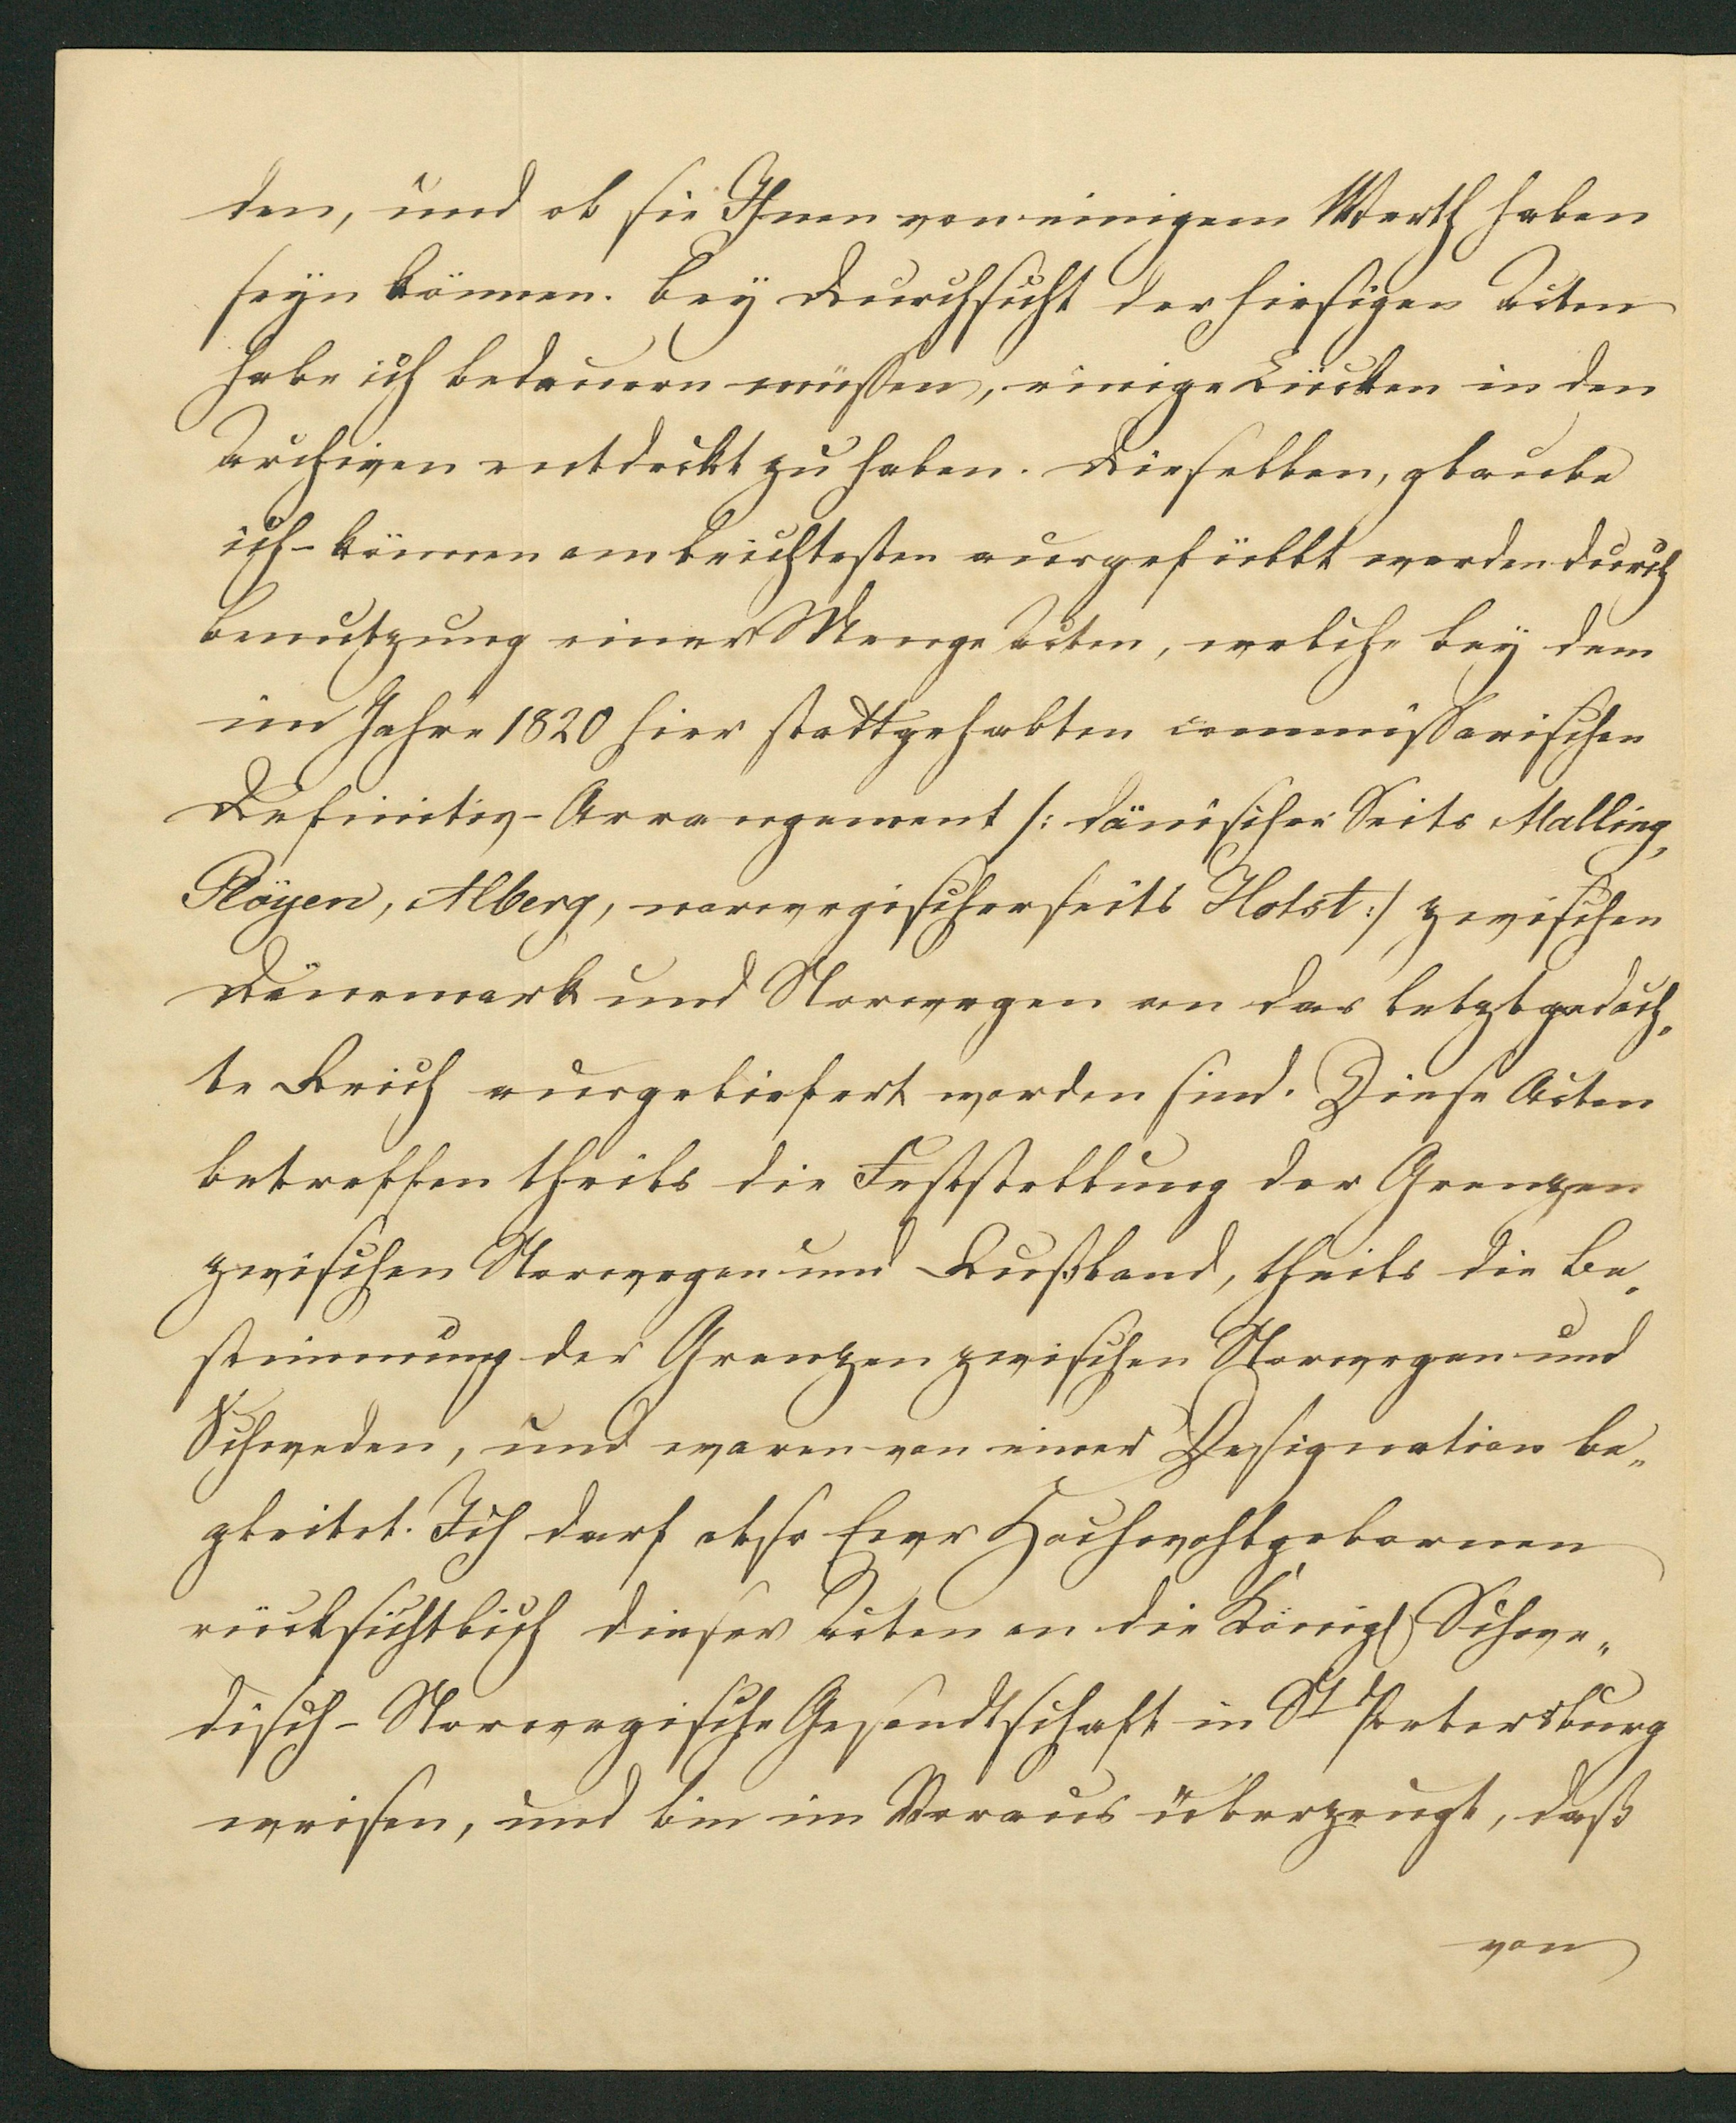 den, und ob sie Ihnen von einigem Werth haben
seÿn können. Beÿ Durchsicht der hiesigen Acten
habe ich bedauern müssen, einige Lücken in den
Archiven entdeckt zu haben. Dieselben, glaube
ich - können am leichtesten ausgefüllt werden durch
Benutzung einer Menge Acten, welche beÿ dem
im Jahre 1820 hier stattgehabten commissarischen
Definitiv-Arrangement /: dänischer Seits Malling,
Plöyen, Alberg, norwegischerseits Holst :/ zwischen
Dänemark und Norwegen an das letztgedach„
te Reich ausgeliefert worden sind. Diese Acten
betreffen theils die Feststellung der Grenzen
zwischen Norwegen und Rußland, theils die Be„
stimmung der Grenzen zwischen Norwegen und
Schweden, und waren von einer Designation be„
gleitet. Ich darf also Ewr Hochwohlgebornen
rücksichtlich dieser Acten an die Königl Schwe„
disch-Norwegische Gesandtschaft in St Petersburg
weisen, und bin im Voraus überzeugt, daß
von